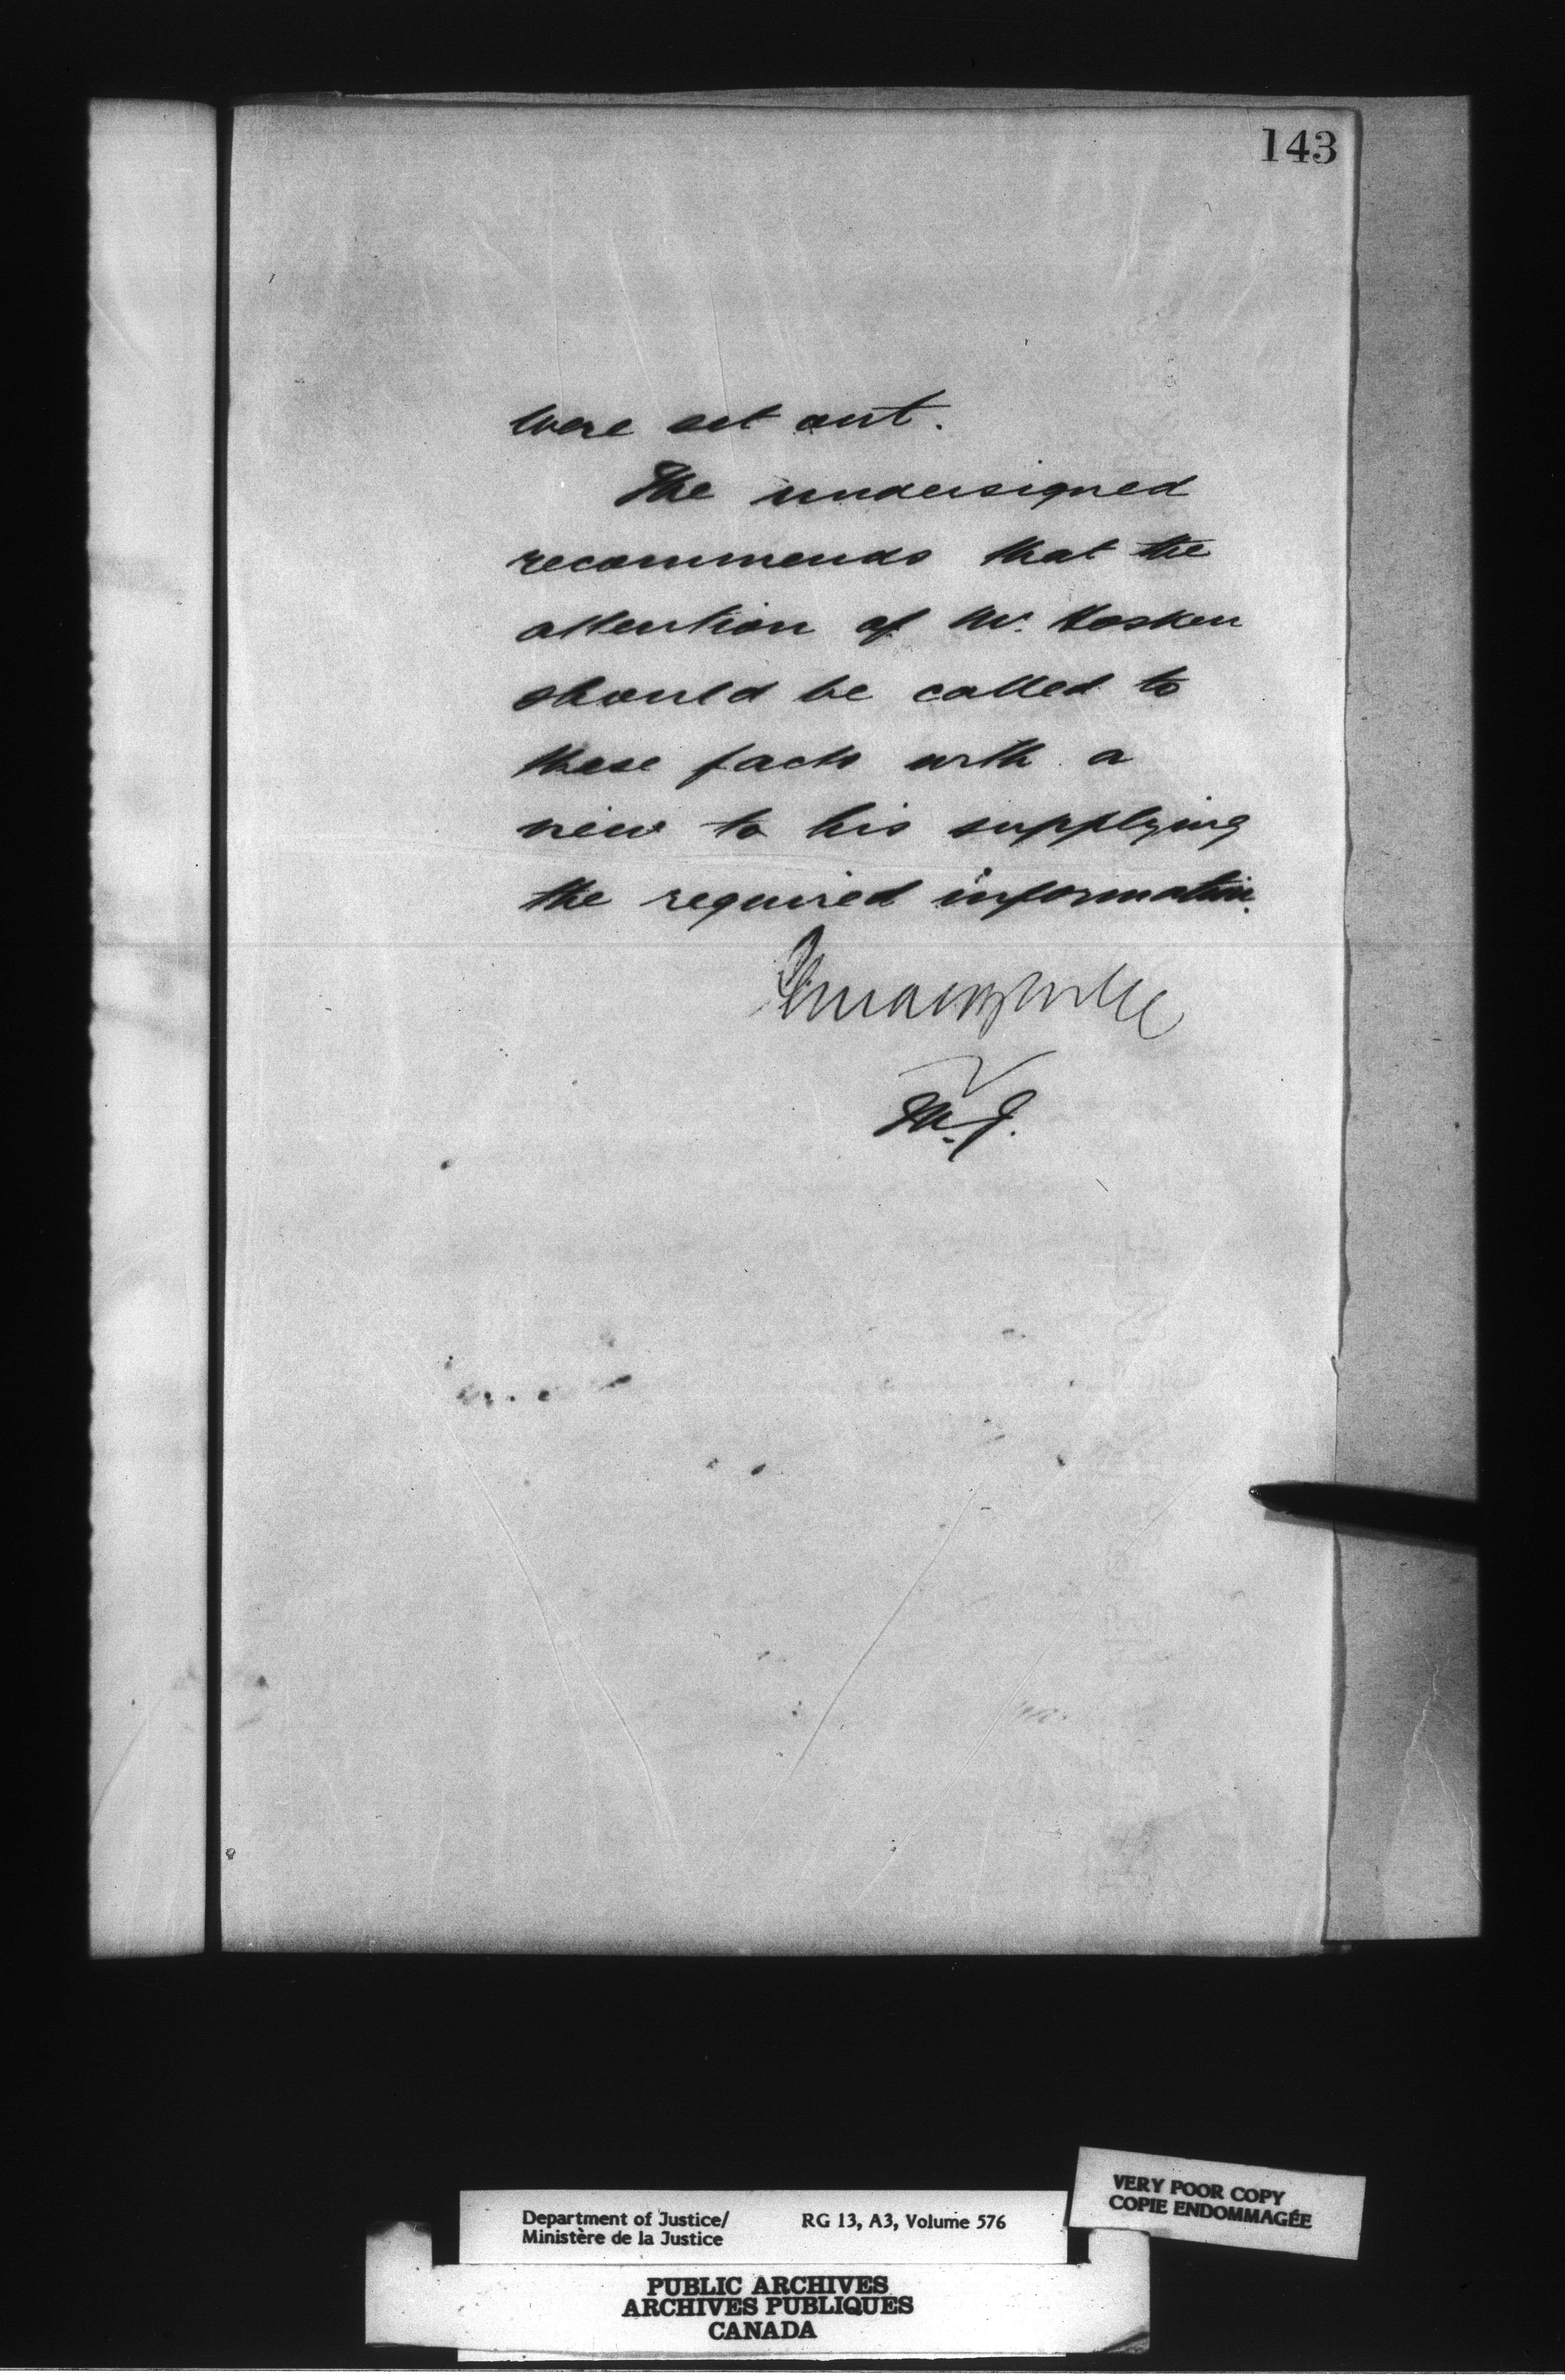 143
were set out.
The undersigned
recommends that the
attention of Mr. Hosken
should be called to
these facts with a
view to his supplying
the required information.
M. J.
Department of Justice/
Ministère de la Justice
RG 13, A3, Volume 576
VERY POOR COPY
COPIE ENDOMMAGÉE
PUBLIC ARCHIVES
ARCHIVES PUBLIQUES
CANADA